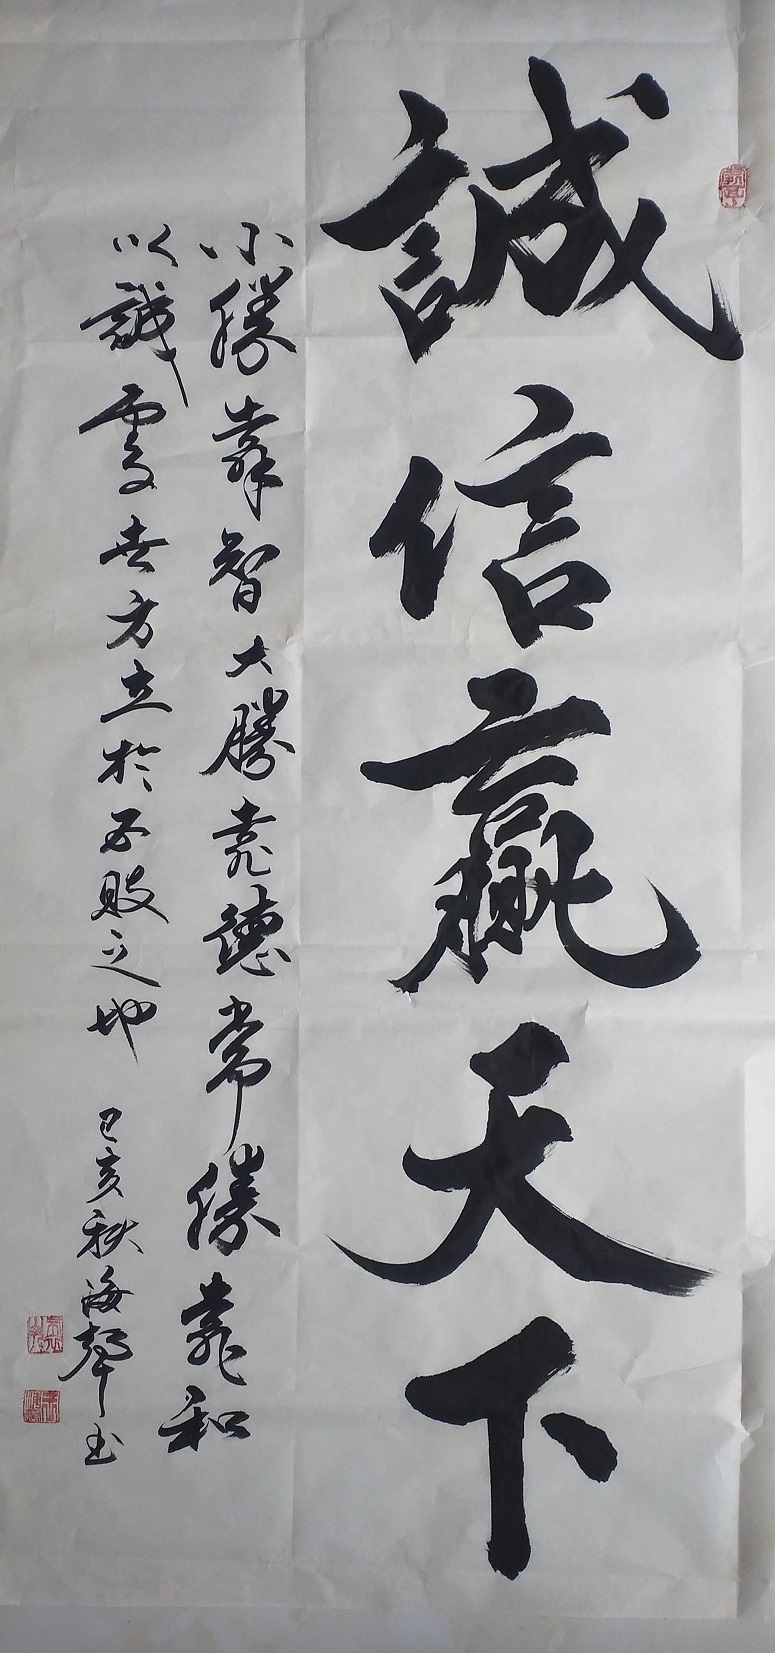 誠信赢天下
小勝靠智大勝靠德常勝靠和
以誠處世方立於不敗之地 己亥秋海聲書